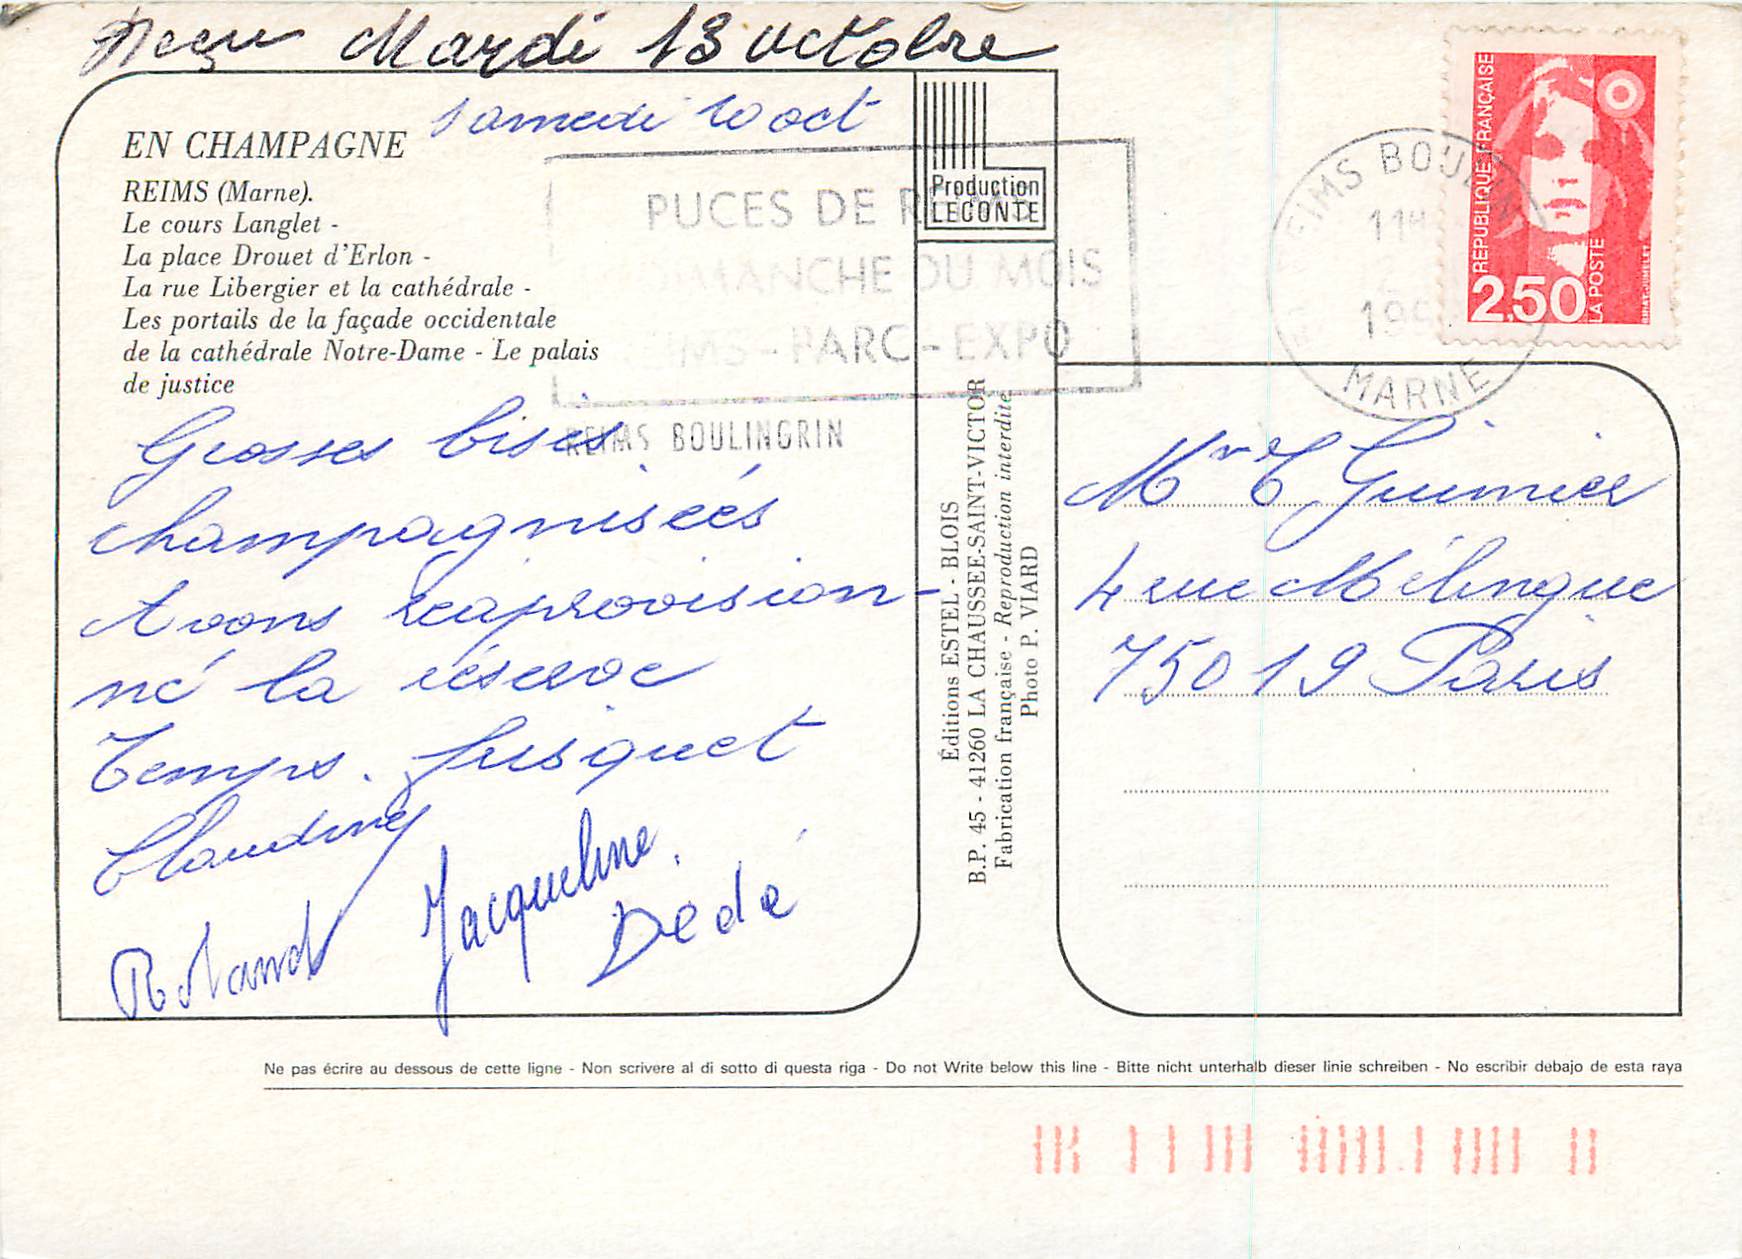 Reçu Mardi 13 octobre
samedi 10 oct
EN CHAMPAGNE
REIMS (Marne).
Le cours Langlet -
La place Drouet d'Erlon -
La rue Libergier et la cathédrale -
Les portails de la façade occidentale
de la cathédrale Notre-Dame - Le palais
de justice
Grosses bises
champagnisées
Avons réaprovision-
né la réserve
Temps. Jusquet
Claudine
Roland
Jacqueline.
Dédé
PUCES DE REIMS
DIMANCHE DU MOIS
REIMS - PARC - EXPO
REIMS BOULINGRIN
Production
LECONTE
Éditions ESTEL - BLOIS
B.P. 45 - 41260 LA CHAUSSEE-SAINT-VICTOR
Fabrication française - Reproduction interdite
Photo P. VIARD
REIMS BOULINGRIN
11H
MARNE
REPUBLIQUE FRANÇAISE
2,50
LA POSTE
BRIAT-JUMELET
Mr T Guimier
4 rue Mélingue
75019 Paris
Ne pas écrire au dessous de cette ligne - Non scrivere al di sotto di questa riga - Do not Write below this line - Bitte nicht unterhalb dieser linie schreiben - No escribir debajo de esta raya